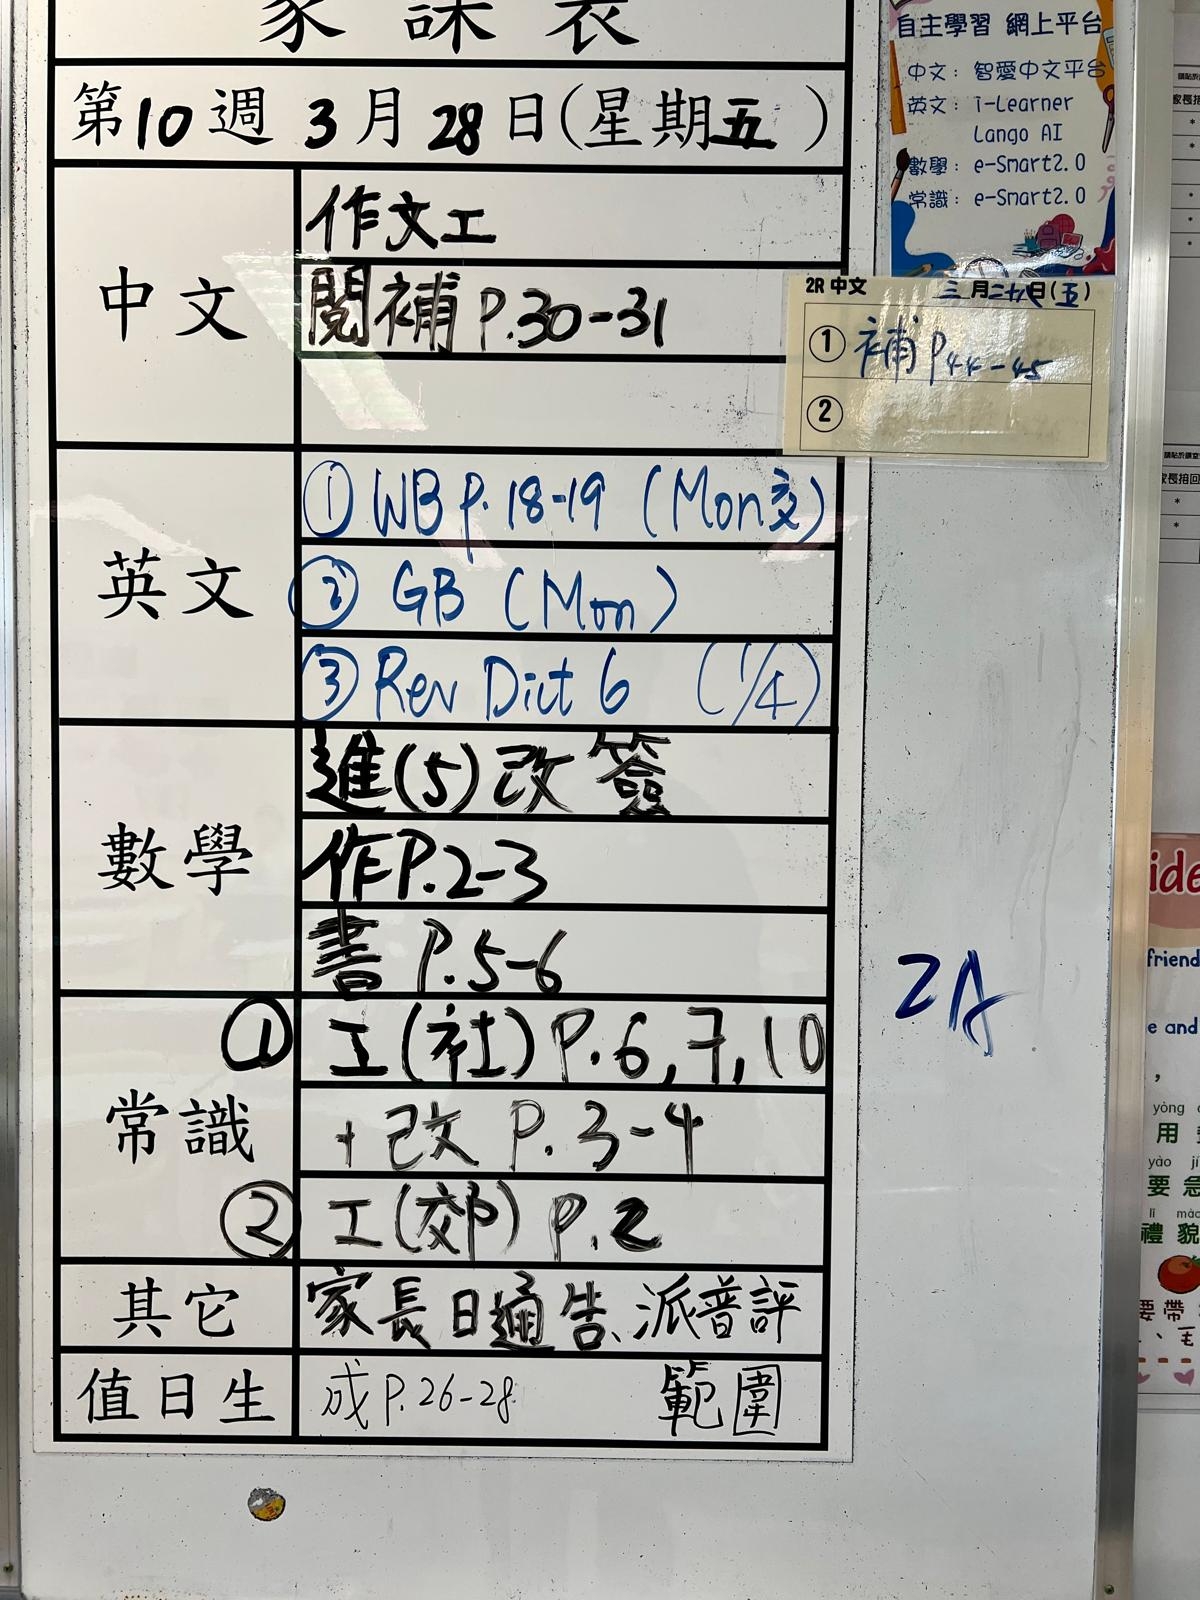 家課表
第10週 3月28日(星期五)
中文
作文工
閱補 P.30-31
英文
① WB P.18-19 (Mon交)
② GB (Mon)
③ Rev Dict 6 (1/4)
數學
進(5)改 簽
作P.2-3
書 P.5-6
常識
① 工(社) P.6,7,10
+改 P.3-4
② 工(郊) P.2
其它
家長日通告、派普評
值日生
成P.26-28 範圍
自主學習 網上平台
中文：智愛中文平台
英文：i-Learner
Lango AI
數學：e-Smart2.0
常識：e-Smart2.0
2R 中文 三月二十八日(五)
① 補P44-45
②
2A
家長捐回
*
*
*
*
*
家長捐回
*
*
ide
friend
e and
，
yòng
用
yào jí
要急
lǐ mào
禮貌
要帶
、毛